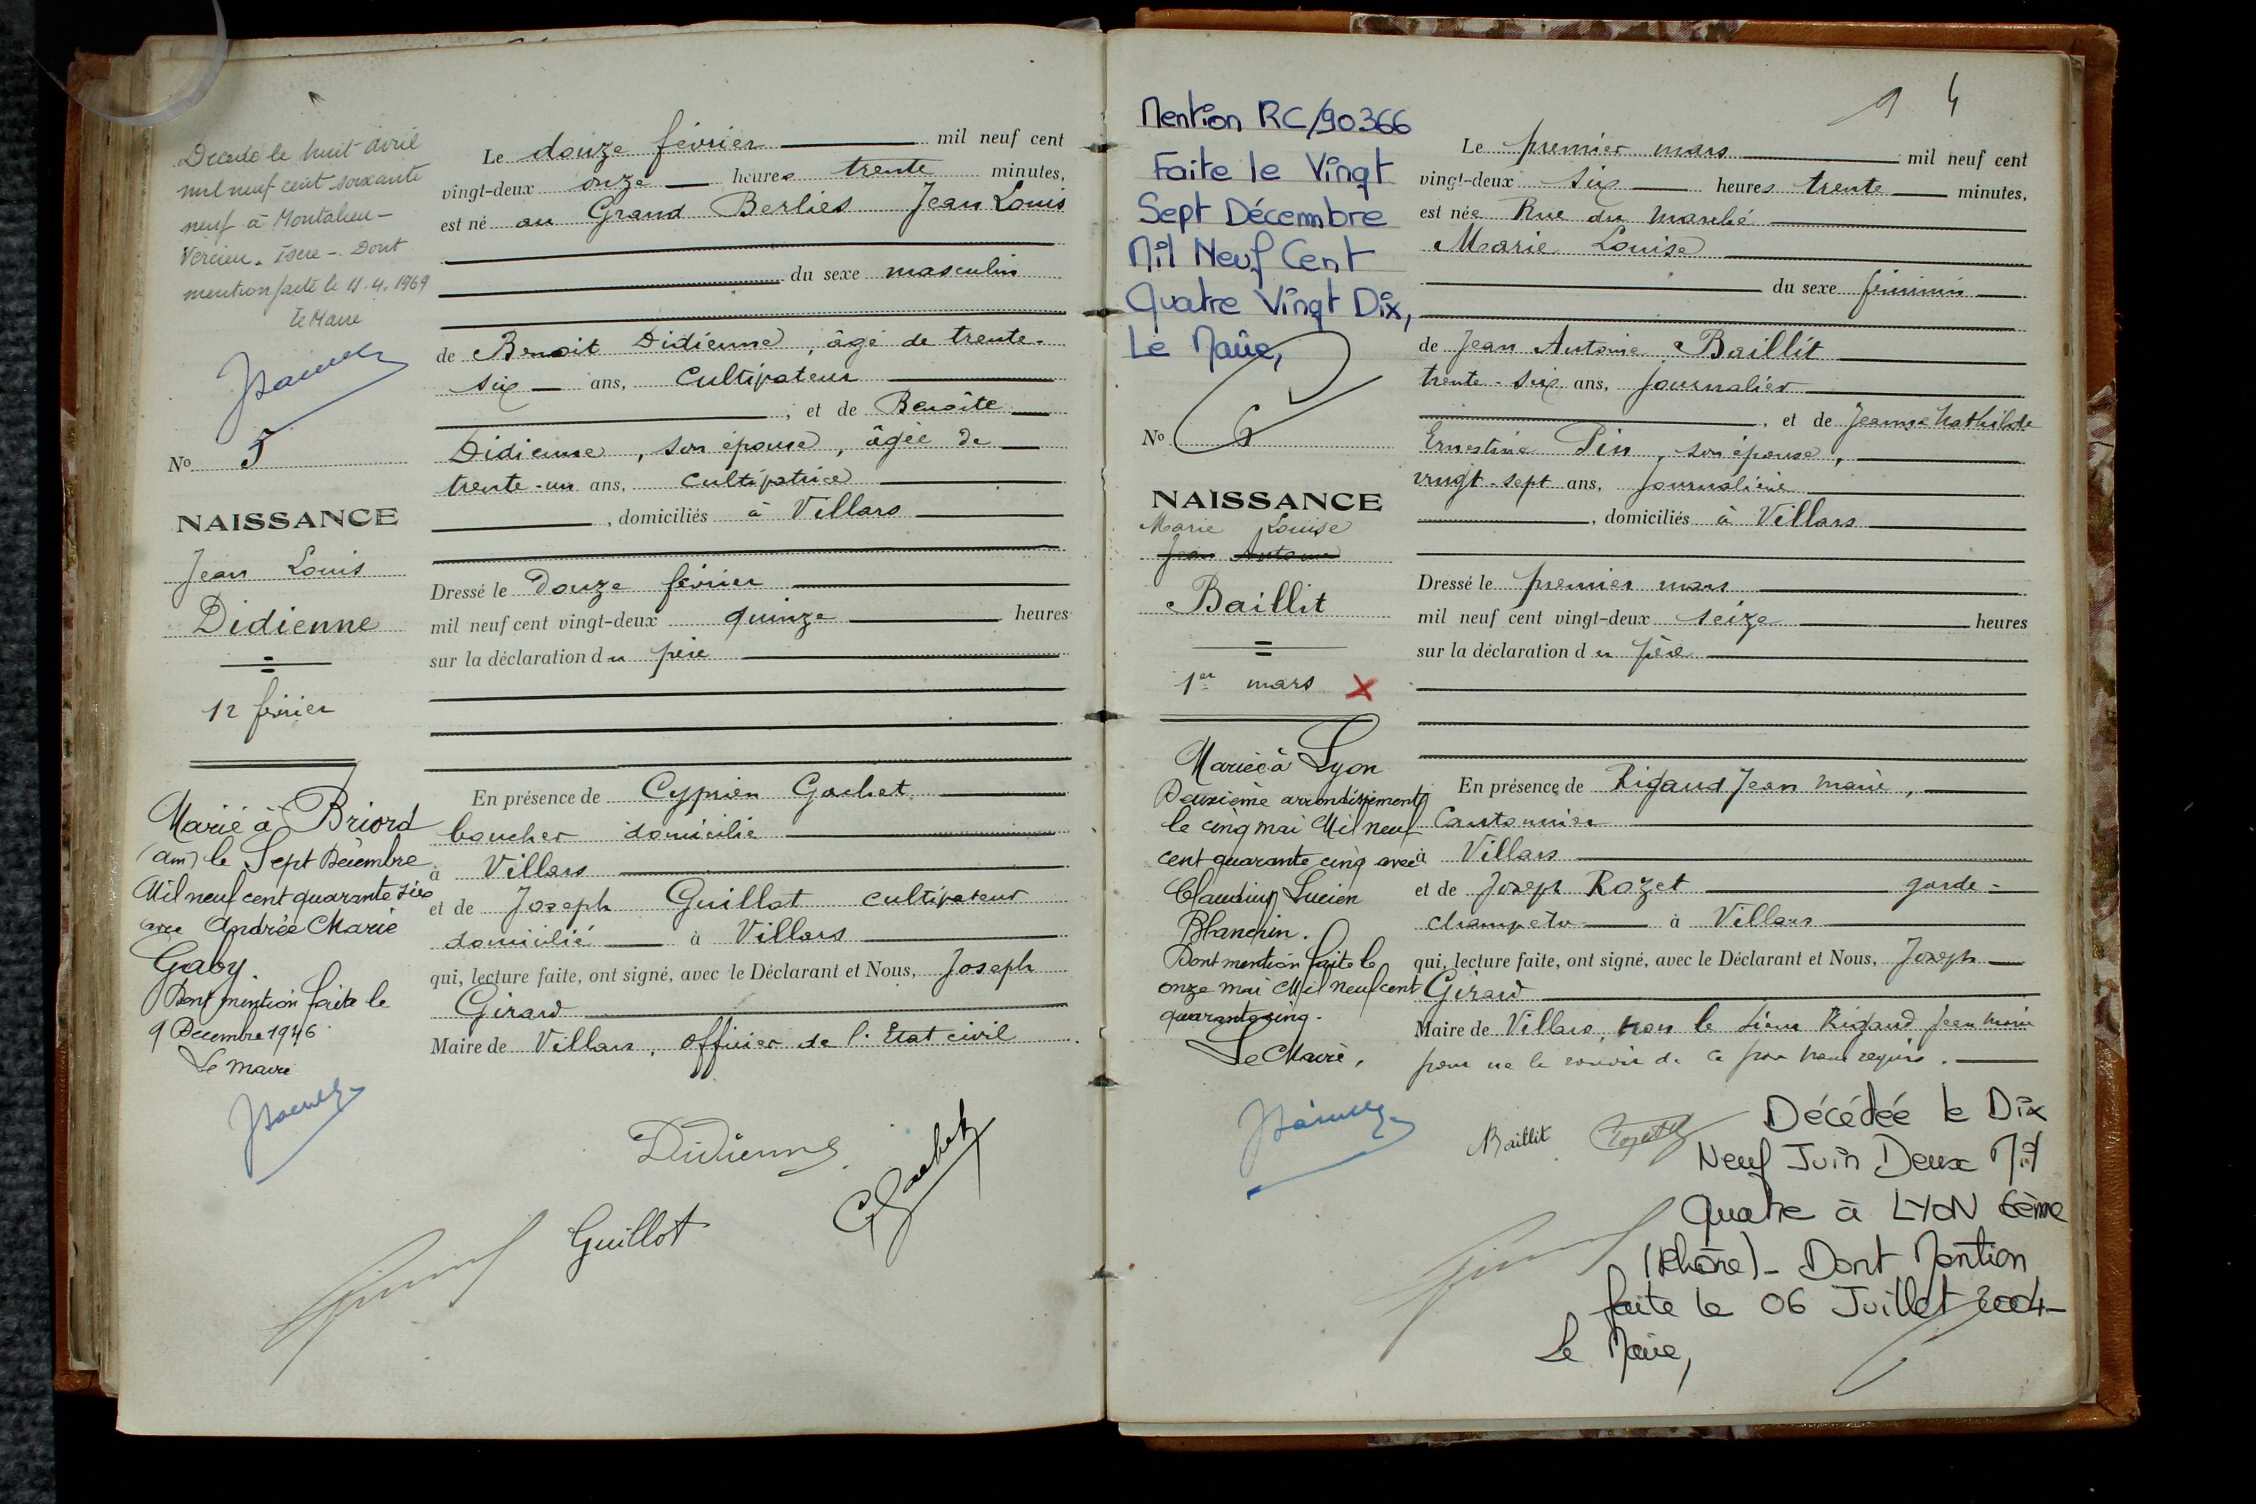 Décédé le huit avril
mil neuf cent soixante
neuf à Montalieu-
Vercieu. Isère -. Dont
mention faite le 11.4.1969
Le Maire
No 5
NAISSANCE
Jean Louis
Didienne
12 février
Marié à Briord
(Ain) le Sept Décembre
Mil neuf cent quarante six
avec Andrée Marie
Gaby.
Dont mention faite le
9 Décembre 1946.
Le Maire
Le douze février mil neuf cent
vingt-deux onze heures trente minutes,
est né au Grand Berliès Jean Louis
du sexe masculin
de Benoit Didienne, âgé de trente-
six ans, Cultivateur
, et de Benoîte
Didienne, son épouse, âgée de
trente-un ans, Cultivatrice
, domiciliés à Villars
Dressé le Douze février
mil neuf cent vingt-deux quinze heures
sur la déclaration du père
En présence de Cyprien Gachet
boucher domicilié
à Villars
et de Joseph Guillot cultivateur
domicilié à Villars
qui, lecture faite, ont signé, avec le Déclarant et Nous, Joseph
Girard
Maire de Villars, officier de l'Etat civil.
Didienne
Guillot
C Gachet
4
Mention RC/90366
Faite le Vingt
Sept Décembre
Mil Neuf Cent
Quatre Vingt Dix,
Le Maire,
No 6
NAISSANCE
Marie Louise
Jean Antoine
Baillit
1er mars X
Mariée à Lyon
Deuxième arrondissement
le cinq mai Mil neuf
cent quarante cinq avec
Claudius Lucien
Blanchin.
Dont mention faite le
onze mai Mil neuf cent
quarante cinq.
Le Maire,
Le premier mars mil neuf cent
vingt-deux six heures trente minutes,
est née Rue du Marché
Marie Louise
du sexe féminin
de Jean Antoine Baillit
trente-six ans, journalier
, et de Jeanne Mathilde
Ernestine Pin, son épouse,
vingt-sept ans, journalière
, domiciliés à Villars
Dressé le premier mars
mil neuf cent vingt-deux seize heures
sur la déclaration du père
En présence de Rigaud Jean Marie,
Cantonnier
à Villars
et de Joseph Rozet garde-
champetre à Villars
qui, lecture faite, ont signé, avec le Déclarant et Nous, Joseph
Girard
Maire de Villars, non le sieur Rigaud Jean Marie
pour ne le savoir de ce par nous requis.
Baillit
Décédée le Dix
Neuf Juin Deux Mil
Quatre à LYON 6ème
(Rhône)- Dont Mention
faite le 06 Juillet 2004-
Le Maire,